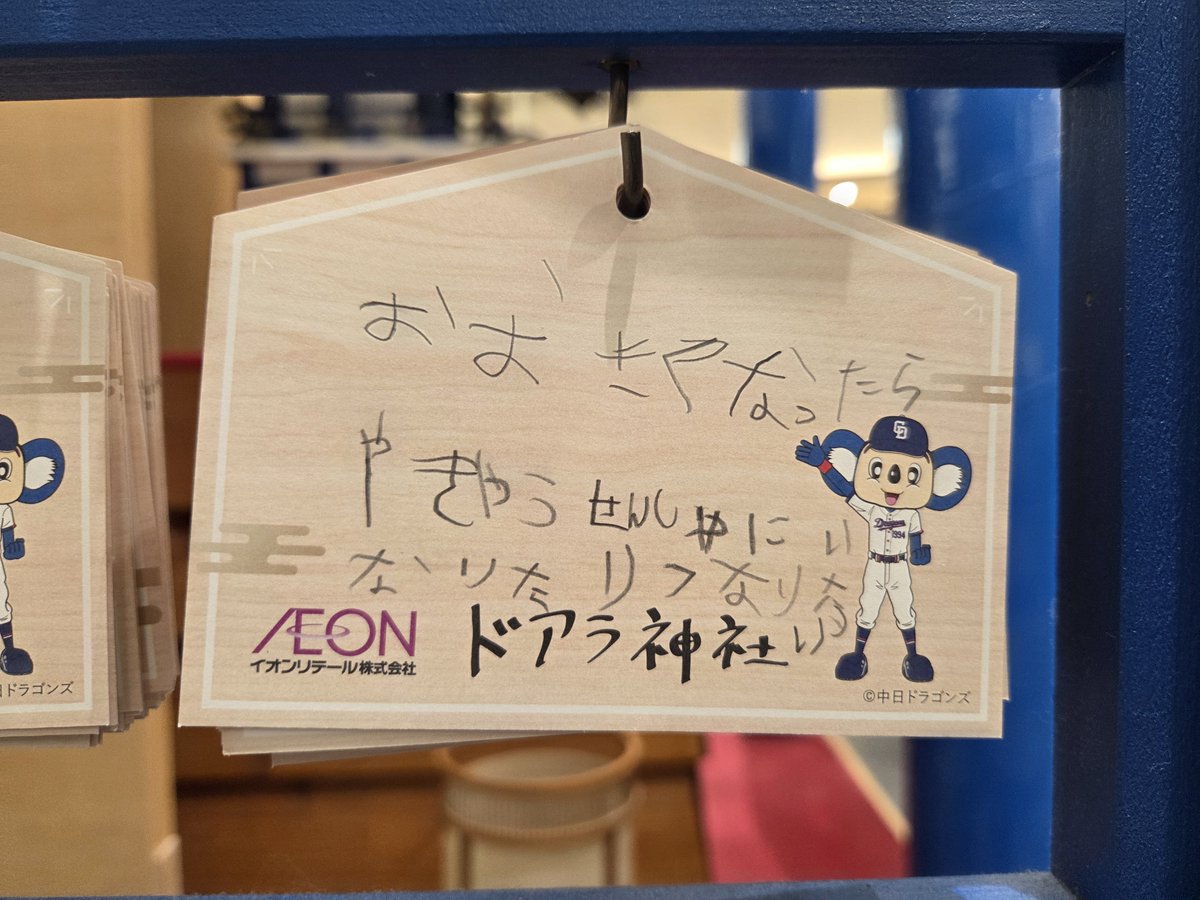 おおきくなったら
やきやうせんしゃにい
なりたりつなりた
い
ÆON
イオンリテール株式会社
ドアラ神社
CD
Dragons
1994
©中日ドラゴンズ
日ドラゴンズ